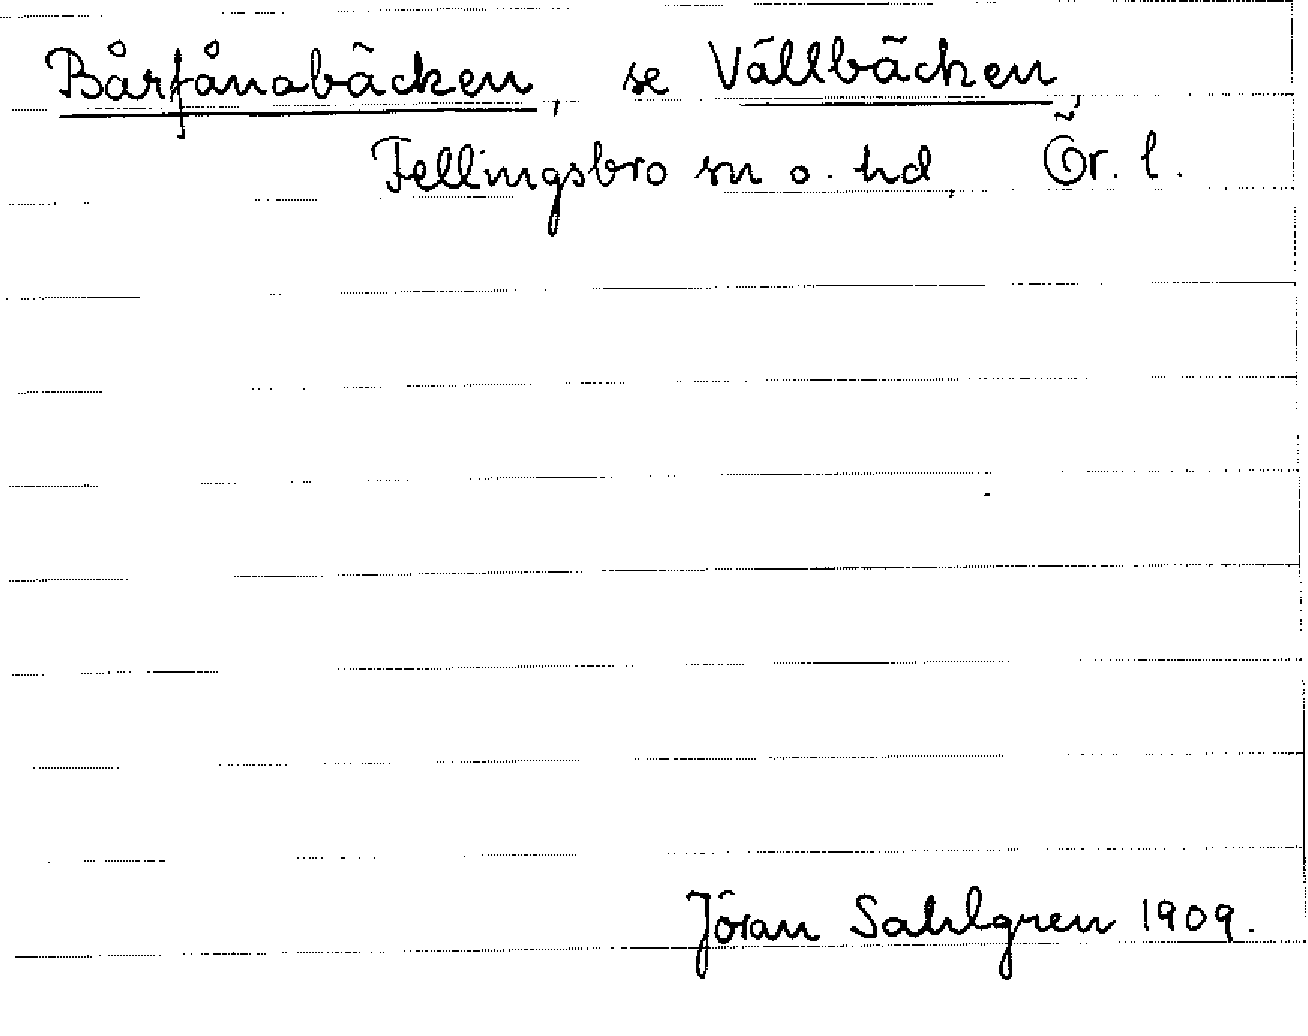 Bårfånabäcken, se Vällbäcken,
Fellingsbro sn o. hd, Ör. l.
Jöran Sahlgren 1909.